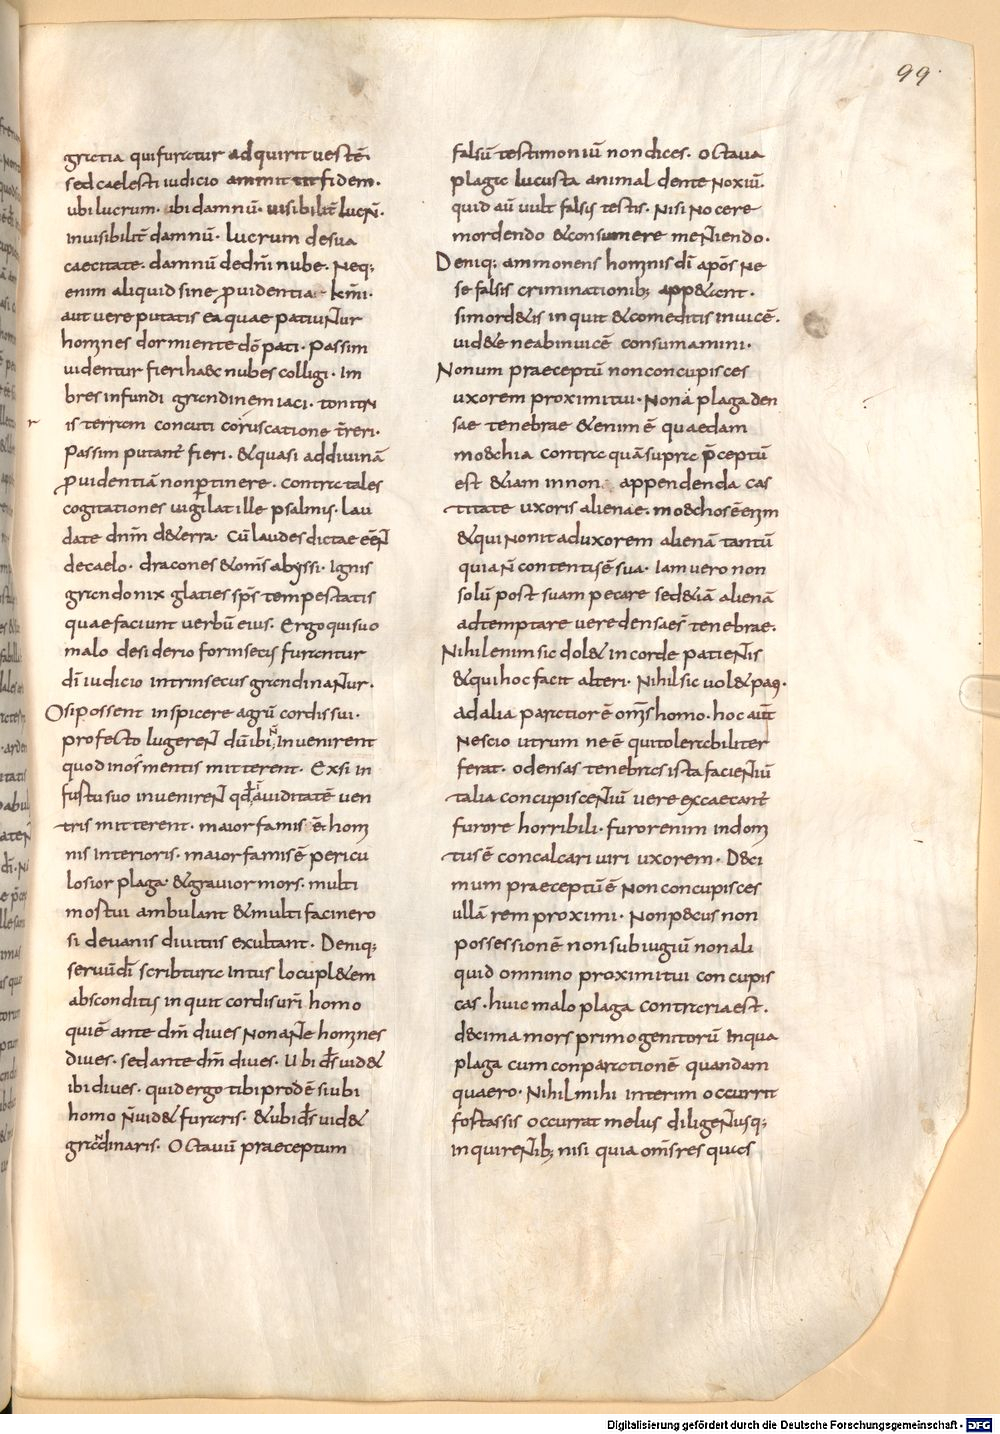 99.
gratia qui furatur adquirit uestē.
sed caelesti iudicio ammittit fidem.
ubi lucrum. ibi damnū. uisibilit̄ lucr̄.
inuisibilit̄ damnū. lucrum desua
caecitate. damnū dedn̄i nube. Neq;
enim aliquid sine ꝓuidentia
aut uere putatis ea quae patiuntur
homines dormiente dō pati. Passim
uidentur fieri haec nubes colligi. Im
bres infundi grandinem iaci. tonitru
is terram concuti coruscatione t̄reri.
Passim putant̄ fieri. & quasi ad diuinā
ꝓuidentiā non ꝑtinere. contra tales
cogitationes uigilat ille psalmis. lau
date dn̄m d& erra. Cū laudes dictae eēnt
decaelo. dracones & om̄s abyssi. Ignis
grando nix glaties sp̄s tempestatis
quae faciunt uerbū eius. Ergo qui suo
malo desiderio forinsecus furantur
dī iudicio intrinsecus grandinantur.
O si possent inspicere agrū cordis sui.
profecto lugerent dū ibi ñ inuenirent
quod inos mentis mitterent. Exsi in
fustu suo inuenirent qđ auiditatē uen
tris mitterent. maior famis ē homi
nis interioris. maior famis ē pericu
losior plaga. & grauior mors. multi
mostui ambulant & multi facinero
si deuanis diuitiis exultant. Deniq;
seruū dī scribtura intus locupl&em
absconditis inquit cordis ur̄i homo
qui ē ante dm̄ diues Non ante homines
diues. sed ante dm̄ diues. Ubi d̄s uid&
ibi diues. quid ergo tibi prodē si ubi
homo n̄ uid& furaris. & ubi d̄s uid&
grandinaris. Octauū praeceptum
falsū testimoniū non dices. octaua
plaga lucusta animal dente noxiū.
quid aū uult falsis testis. Nisi nocere
mordendo & consumere mentiendo.
Deniq; ammonens homines dī apōs ne
se falsis criminationib; app&ant.
simord&is inquit & comeditis inuicē.
uid&e ne abinuicē consumamini.
Nonum praeceptū non concupisces
uxorem proximi tui. Nona plaga den
sae tenebrae & enim ē quaedam
moechia contra quā supra p̄ceptū
est &iam in non appendenda cas
titate uxoris alienae. moechos ē enim
& qui non it ad uxorem alienā tantū
quia n̄ contentis ē sua. Iam uero non
solū post suam pecare sed &iā alienā
adtemptare uere densae s̄ tenebrae.
Nihil enim sic dol& in corde patientis
& qui hoc facit alteri. Nihil sic uol& pati.
ad alia paratior ē om̄s homo. hoc aut̄
Nescio utrum ne ē qui tolerabiliter
ferat. o densas tenebras ista facientiū
talia concupiscentiū uere excaecant̄
furore horribili. furor enim indomi
tus ē concalcari uiri uxorem. Deci
mum praeceptū ē Non concupisces
ullā rem proximi. Non pecus non
possessionē non subiugiū non ali
quid omnino proximi tui concupis
cas. huic malo plaga contraria est.
decima mors primogenitorū Inqua
plaga cum conparationē quandam
quaero. Nihil mihi interim occurrit
fostassis occurrat melus diligentiusq;
inquirentib; nisi quia om̄s res quas
Digitalisierung gefördert durch die Deutsche Forschungsgemeinschaft - DFG